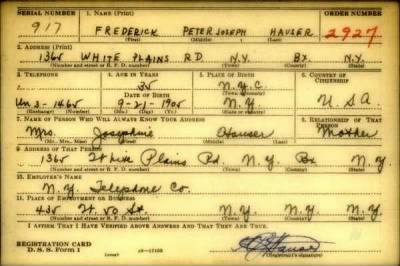 SERIAL NUMBER 1. NAME (Print) ORDER NUMBER
917 FREDERICK PETER JOSEPH HAUSER 2927
(First) (Middle) (Last)
2. ADDRESS (Print)
1365 WHITE PLAINS RD. N.Y. BX. N.Y.
(Number and street or R. F. D. number) (Town) (County) (State)
3. TELEPHONE 4. AGE IN YEARS 5. PLACE OF BIRTH 6. COUNTRY OF CITIZENSHIP
35 N.Y.C.
DATE OF BIRTH
3-1465 9-21-1905 N.Y. U.S.A
(Exchange) (Number) (Mo.) (Day) (Yr.) (State or country)
7. NAME OF PERSON WHO WILL ALWAYS KNOW YOUR ADDRESS 8. RELATIONSHIP OF THAT PERSON
Mrs. Josephine Hauser Mother
(Mr., Mrs., Miss) (First) (Middle) (Last)
9. ADDRESS OF THAT PERSON
1365 White Plains Rd. N.Y. Bx N.Y
(Number and street or R. F. D. number) (Town) (County) (State)
10. EMPLOYER'S NAME
N.Y. Telephone Co.
11. PLACE OF EMPLOYMENT OR BUSINESS
435 W. 50 St. N.Y. N.Y. N.Y
(Number and street or R. F. D. number) (Town) (County) (State)
I AFFIRM THAT I HAVE VERIFIED ABOVE ANSWERS AND THAT THEY ARE TRUE.
REGISTRATION CARD
D. S. S. Form 1 Hauser
(over) (Registrant's signature)